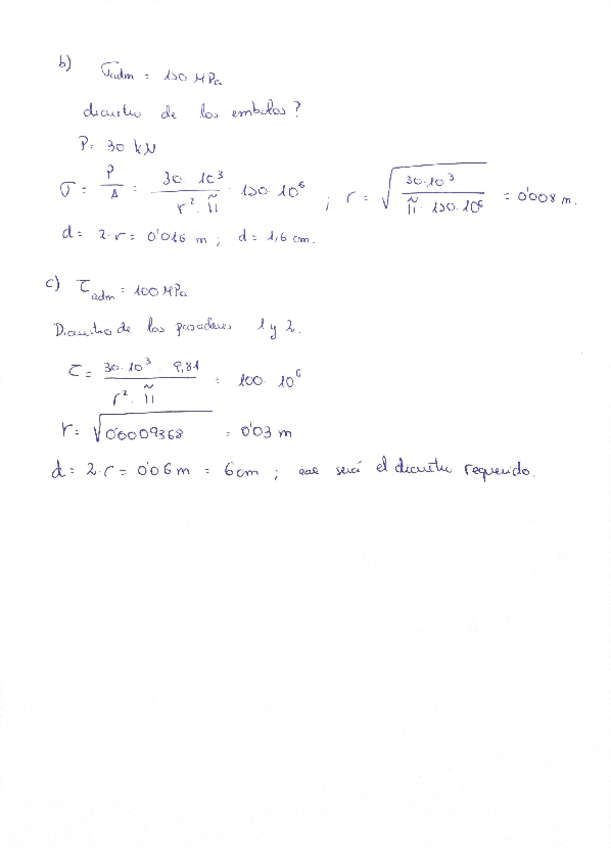 b) σadm = 150 MPa
diametro de los embolos?
P = 30 kN
σ = P/A = 30·10³/r²·π̃ · 150·10⁶ ; r = √(30·10³/π̃·150·10⁶) = 0'008 m.
d = 2·r = 0'016 m ; d = 1,6 cm.
c) τadm = 100 MPa
Diametro de los pasadores 1 y 2.
τ = 30·10³·9,81/r²·π̃ = 100·10⁶
r = √0'0009368 = 0'03 m
d = 2·r = 0'06 m = 6 cm ; ese será el diametro requerido.